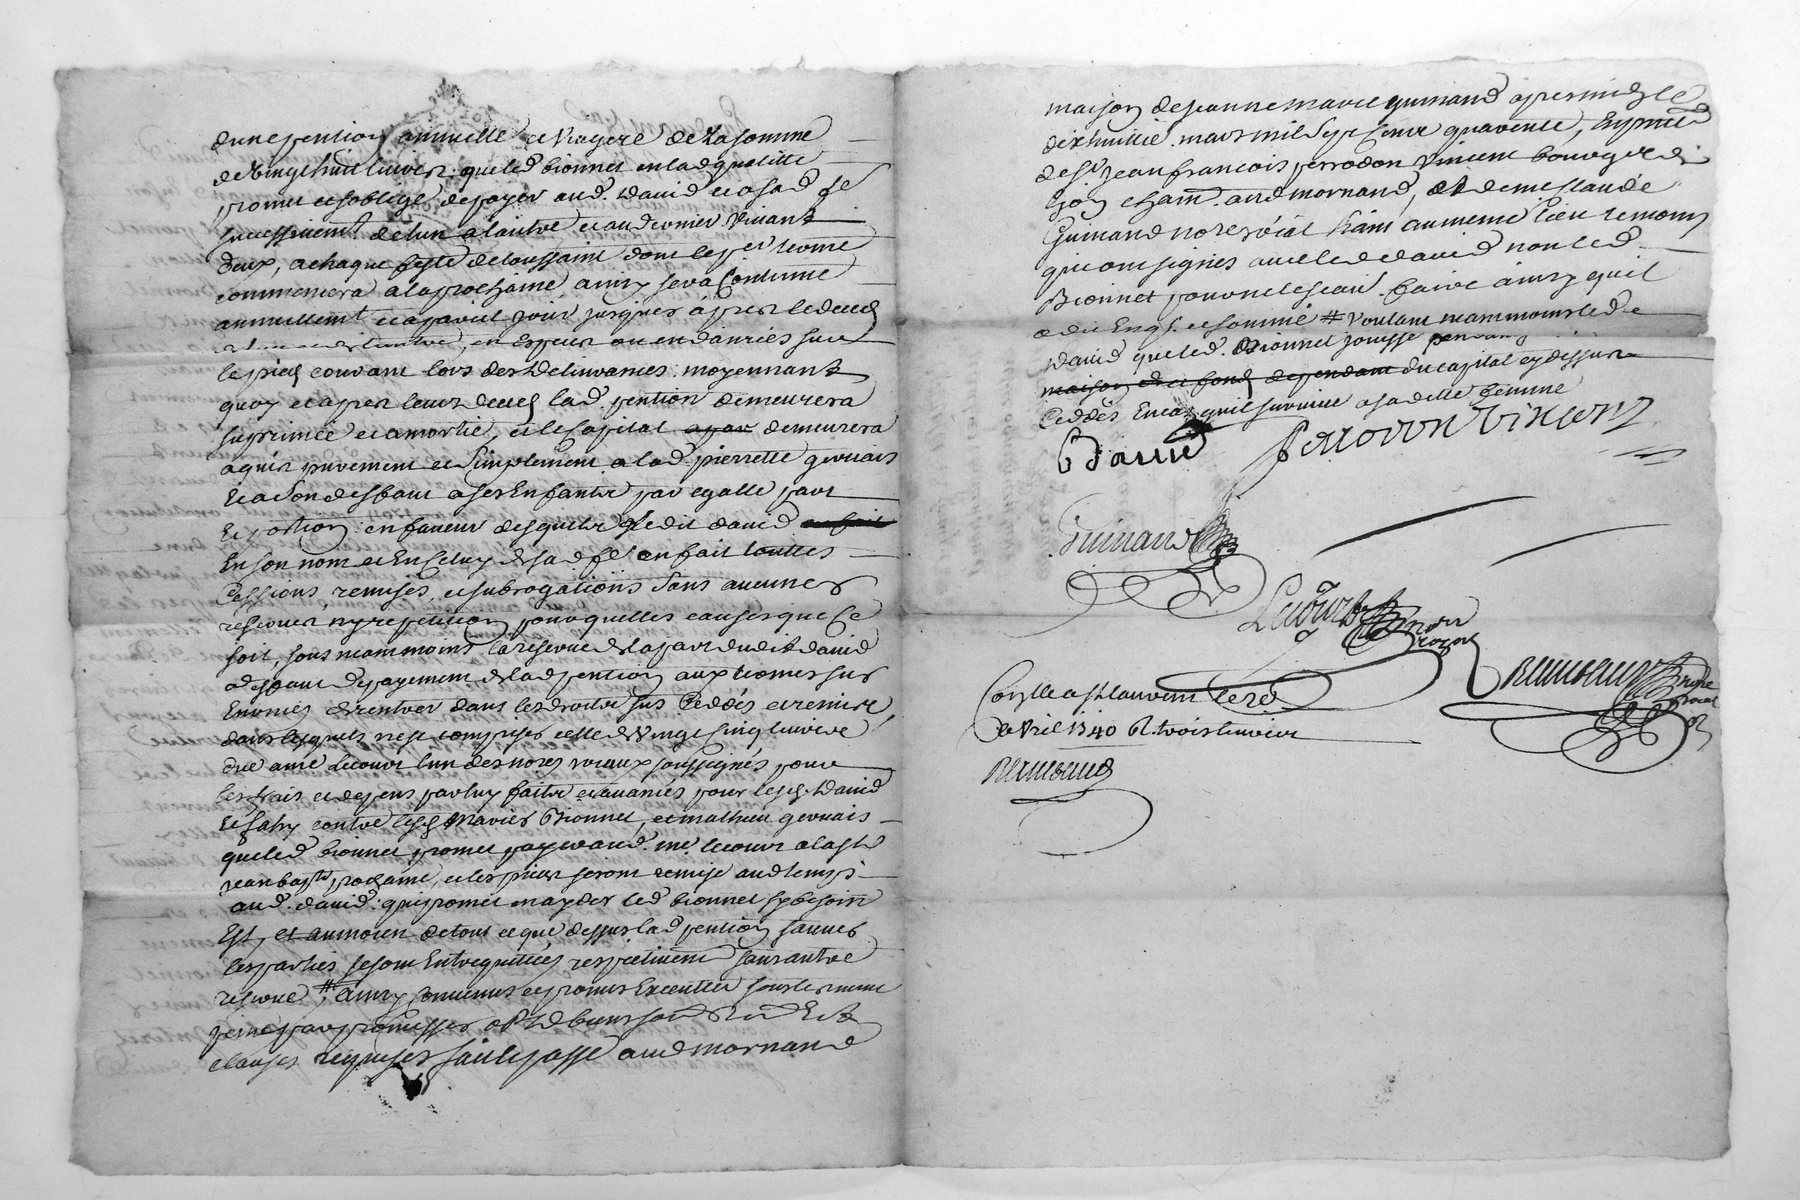 d'une pention annuelle et viagere de la somme
de vingt huit livres. que led bionnet en lad qualitté
promet et s'oblige de payer aud. david et a sad fe
successivemt de l'un a l'autre et au dernier vivant
d'eux, a chaque feste de toussaint dont le pr terme
commencera a la prochaine ainsy sera continué
annuellemt et a pareil jour jusques apres le deced
et l'autre, en especes ou en danrées sur
le pied courant lors des delivrances. moyennant
quoy et apres leurs deced lad. pention demeurera
suprimée et amortie, et le capital demeurera
aquis purement et simplement a lad. pierrette gervais
et a son desfaut a ses enfants par egalle part
et portion. en faveur desquels ledit david
en son nom et en celuy de sad fe en fait touttes
cessions, remises, et subrogations sans aucunes
reserves, ny repetition pour quelles causes que ce
soit, sous neammoins la reserve de la part dudit david
a desfaut de payement de lad pention aux termes sus
enoncés de rentrer dans les droits sus ceddés et remis,
dans lesquels n'est comprise celle de vingt cinq livres
due a me Lecour l'un des nores royaux soussignés pour
les frais et depens par luy faits et avancés pour lesd. david
et fahy contre lesd maries Bionnet, et mathieu gervais
que led bionnet promet payer aud. me. lecour a la st
jean bapte prochaine, et les pieces seront remise aud temps
aud. david. qui promet n'ayder led bionnet sy besoin
est, et au moien de tout ce que dessus lad pention sauves
les parties se sont entrequittées respectivement sans autre
reserve, # ainsy convenus et promis executer sous les memes
peines par promesses obl de biens soum
clauses requises fait et passé aud mornand
maison de jeanne marie guinand apres midy le
dixhuitie. mars mil sept cent quarente, en pnce
de sr jean francois perrodon vincent bourgeois de
lyon et ham. aud mornand, et de me claude
Guinand nore royal ham au meme lieu temoins
qui ont signés avec led david non led
Bionnet pour ne le scavoir faire ainsy qu'il
a dit enqs et sommé # voulant neammoins led
david que led. Bionnet jouisse pendant
maison et et fond dependant du capital cy dessus
ceddés en cas qu'il survive a sa dette femme
C David Perrodon Vincent
Guinand
Lecour nore royal
Remoud nore royal
Conlle a st laurent le 20
avril 1740 R. trois livres
Remoud